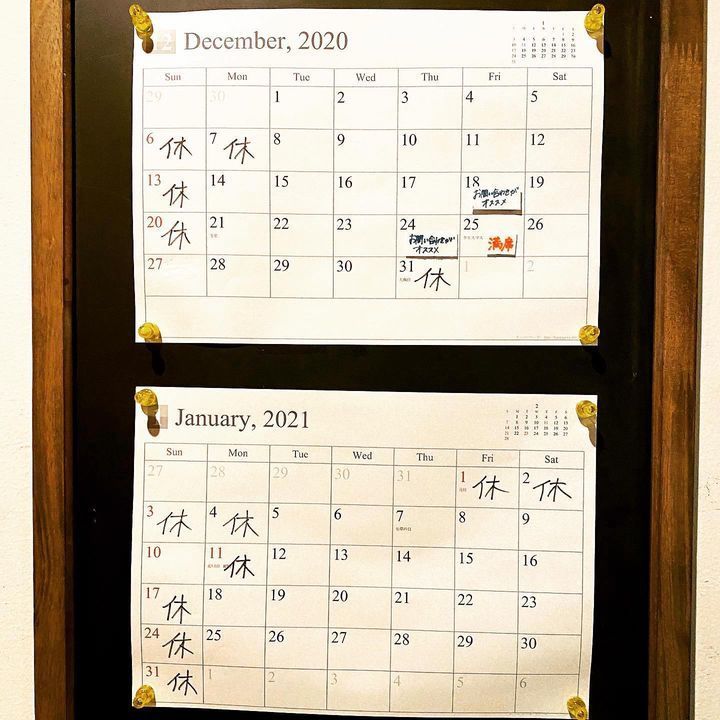 December, 2020
Sun Mon Tue Wed Thu Fri Sat
29 30 1 2 3 4 5
6 休 7 休 8 9 10 11 12
13 休 14 15 16 17 18 お問い合わせが 19
オススメ
20 休 21 22 23 24 お問い合わせが 25 満席 26
オススメ
クリスマス
27 28 29 30 31 休 1 2
大晦日
January, 2021
Sun Mon Tue Wed Thu Fri Sat
27 28 29 30 31 1 休 2 休
元日
3 休 4 休 5 6 7 8 9
10 11 休 12 13 14 15 16
17 休 18 19 20 21 22 23
24 休 25 26 27 28 29 30
31 休 1 2 3 4 5 6